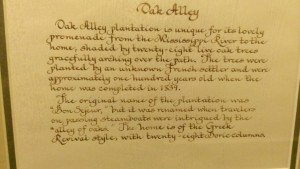 Oak Alley
Oak Alley plantation is unique for its lovely
promenade from the Mississippi River to the
home, shaded by twenty-eight live oak trees
gracefully arching over the path. The trees were
planted by an unknown French settler and were
approximately one hundred years old when the
home was completed in 1839.
The original name of the plantation was
"Bon Sejour," but it was renamed when travelers
on passing steamboats were intrigued by the
"alley of oaks." The home is of the Greek
Revival style, with twenty-eight Doric columns.